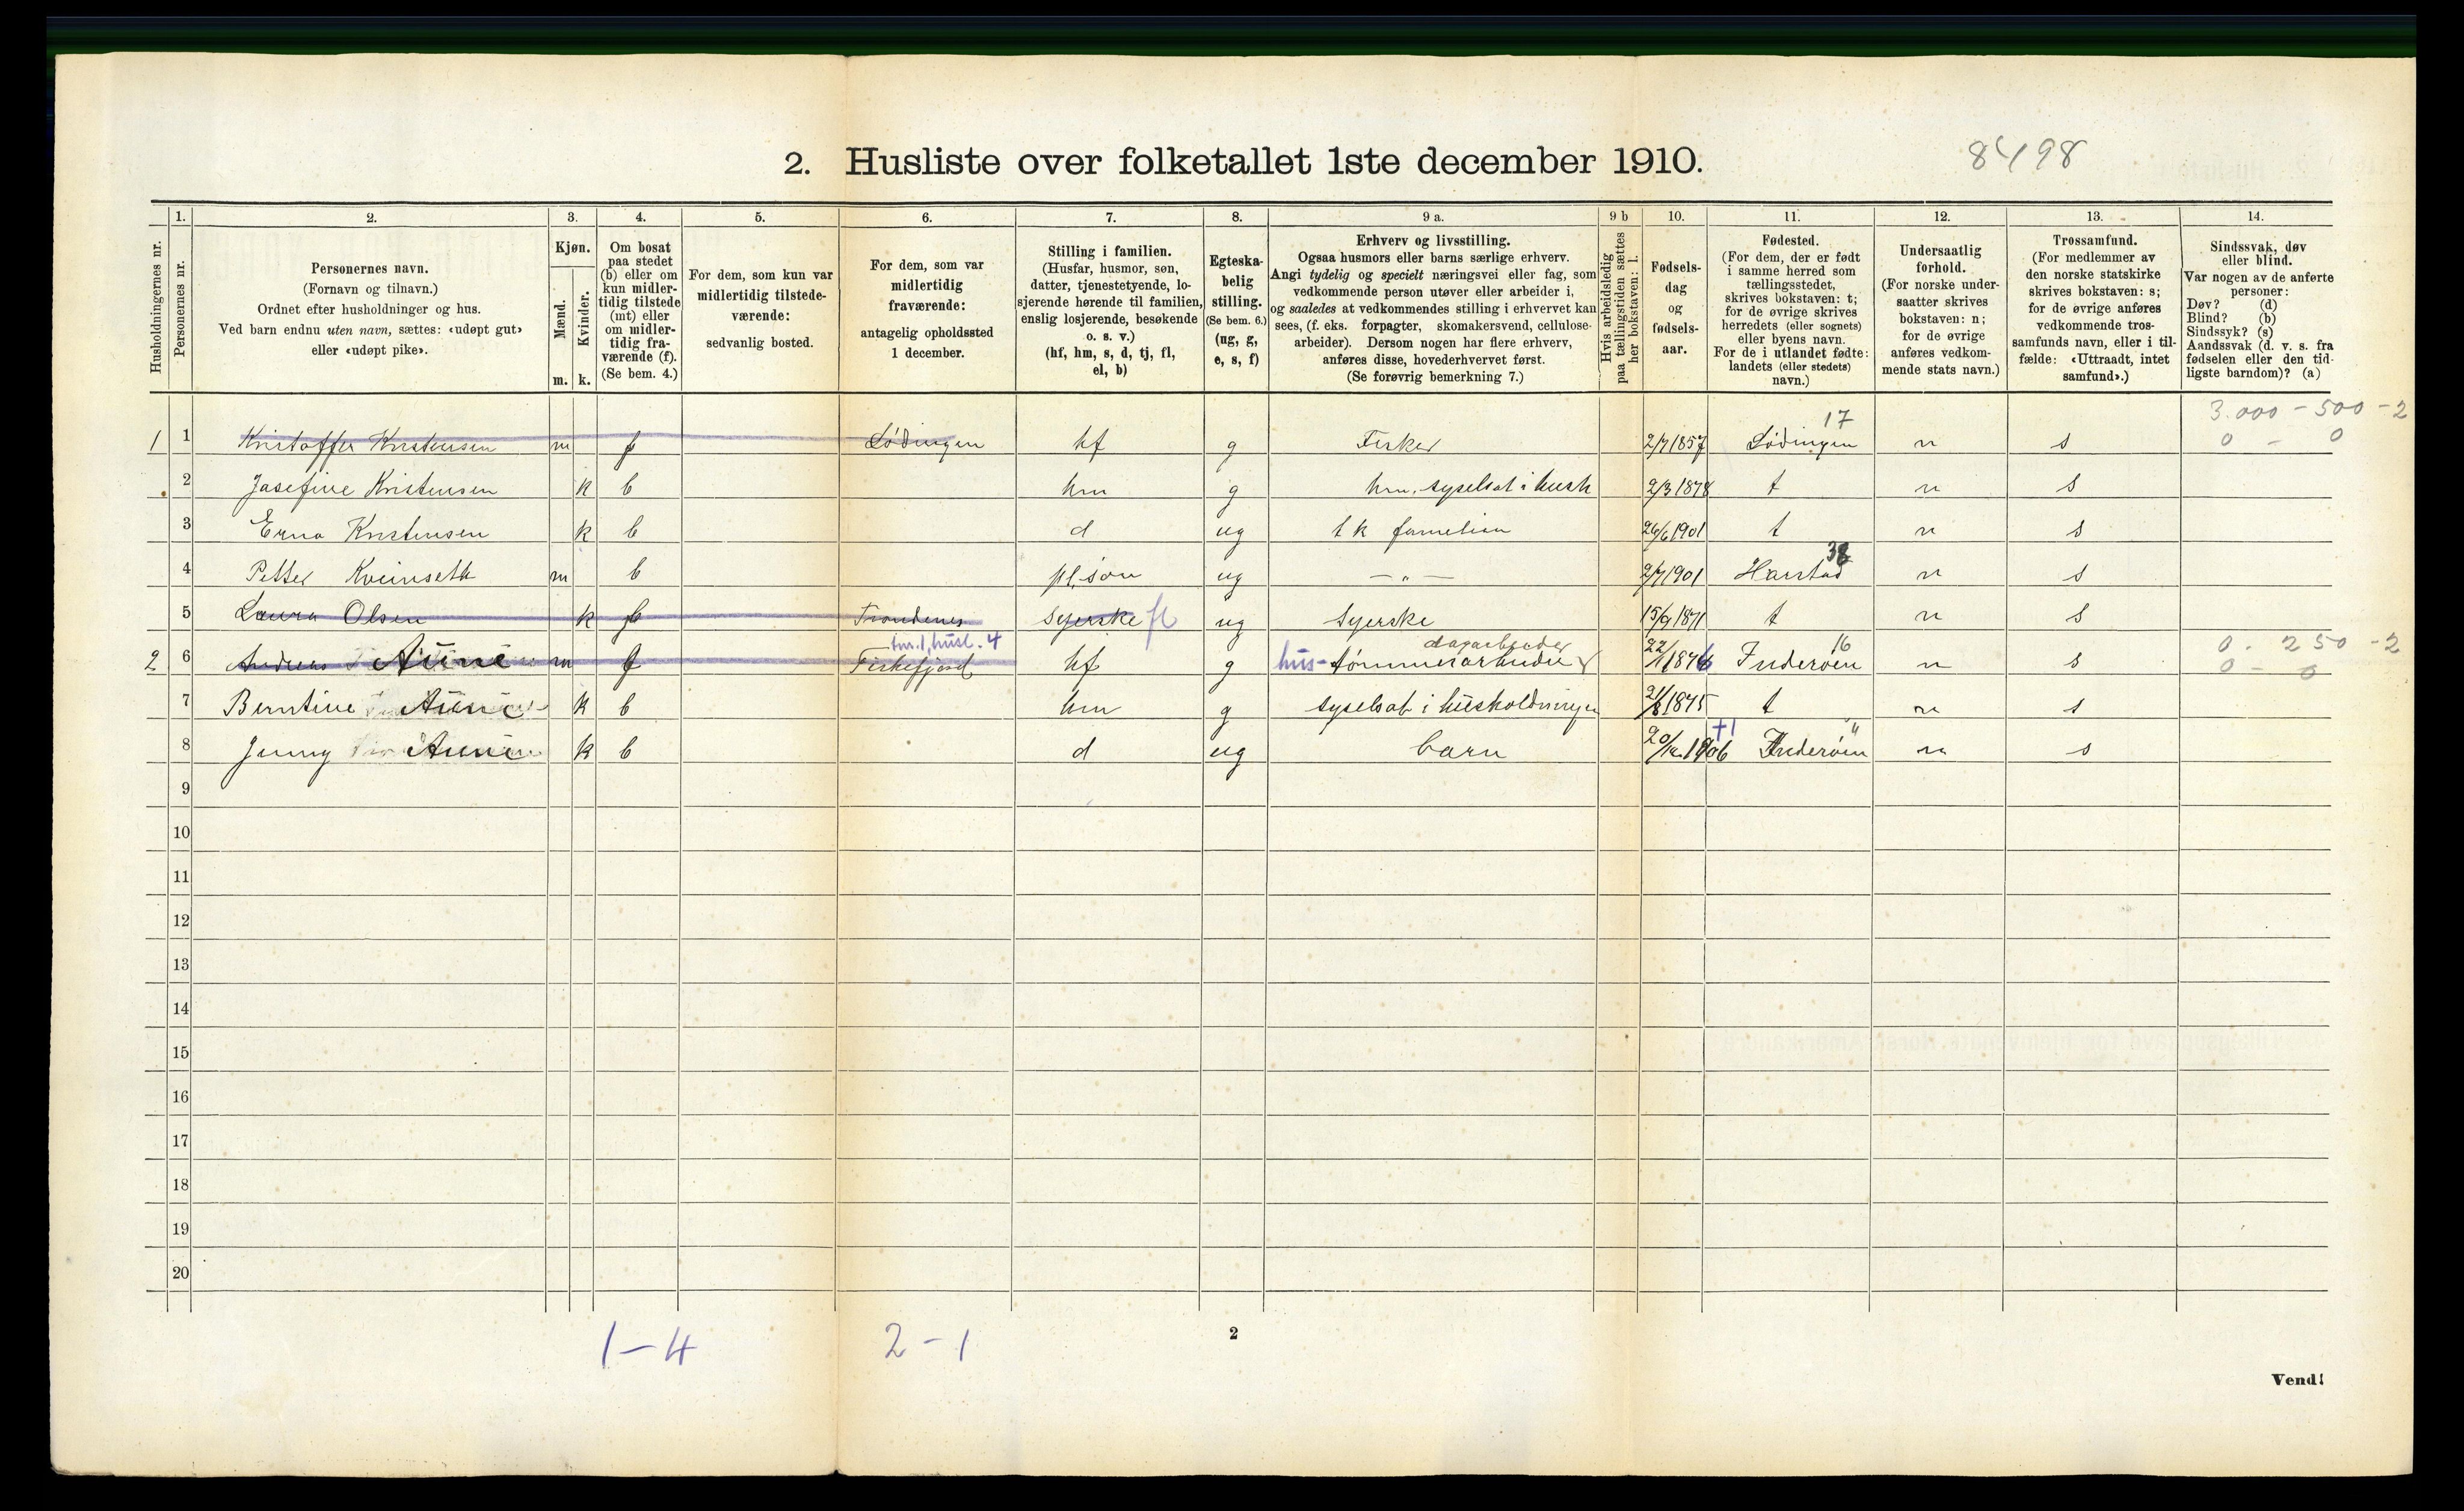 2. Husliste over folketallet 1ste december 1910.
8498
Husholdningernes nr.
1.
Personernes nr.
2.
Personernes navn.
(Fornavn og tilnavn.)
Ordnet efter husholdninger og hus.
Ved barn endnu uten navn, sættes: «udøpt gut»
eller «udøpt pike».
3.
Kjøn.
Mænd.
Kvinder.
m. k.
4.
Om bosat
paa stedet
(b) eller om
kun midler-
tidig tilstede
(mt) eller
om midler-
tidig fra-
værende (f).
(Se bem. 4.)
5.
For dem, som kun var
midlertidig tilstede-
værende:
sedvanlig bosted.
6.
For dem, som var
midlertidig
fraværende:
antagelig opholdssted
1 december.
7.
Stilling i familien.
(Husfar, husmor, søn,
datter, tjenestetyende, lo-
sjerende hørende til familien,
enslig losjerende, besøkende
o. s. v.)
(hf, hm, s, d, tj, fl,
el, b)
8.
Egteska-
belig
stilling.
(Se bem. 6.)
(ug, g,
e, s, f)
9 a.
Erhverv og livsstilling.
Ogsaa husmors eller barns særlige erhverv.
Angi tydelig og specielt næringsvei eller fag, som
vedkommende person utøver eller arbeider i,
og saaledes at vedkommendes stilling i erhvervet kan
sees, (f. eks. forpagter, skomakersvend, cellulose-
arbeider). Dersom nogen har flere erhverv,
anføres disse, hovederhvervet først.
(Se forøvrig bemerkning 7.)
9 b
Hvis arbeidsledig
paa tællingstiden sættes
her bokstaven: l.
10.
Fødsels-
dag
og
fødsels-
aar.
11.
Fødested.
(For dem, der er født
i samme herred som
tællingsstedet,
skrives bokstaven: t;
for de øvrige skrives
herredets (eller sognets)
eller byens navn.
For de i utlandet fødte:
landets (eller stedets)
navn.)
12.
Undersaatlig
forhold.
(For norske under-
saatter skrives
bokstaven: n;
for de øvrige
anføres vedkom-
mende stats navn.)
13.
Trossamfund.
(For medlemmer av
den norske statskirke
skrives bokstaven: s;
for de øvrige anføres
vedkommende tros-
samfunds navn, eller i til-
fælde: «Uttraadt, intet
samfund».)
14.
Sindssvak, døv
eller blind.
Var nogen av de anførte
personer:
Døv? (d)
Blind? (b)
Sindssyk? (s)
Aandssvak (d. v. s. fra
fødselen eller den tid-
ligste barndom)? (a)
17 3.000 - 500 - 2
1 1 Kristoffer Kristensen m f Lødingen hf g Fisker 2/7 1857 Lødingen n s 0 - 0
2 Josefine Kristensen k b hm g hm, syselsat i hush 2/3 1878 t n s
3 Erna Kristensen k b d ug t k familien 26/6 1901 t n s
38
4 Petter Kveinseth m b pl. søn ug — " — 2/7 1901 Harstad n s
5 Laura Olsen k Trondenes syerske fl ug Syerske 15/9 1871 t n s
tm. 1, husl. 4 dagarbeider 16 0 - 250 - 2
2 6 Andreas Aune m f Fiskefjord hf g hus-tømmerarbeider 22/1 1876 Inderøen n s 0 - 0
7 Berntine Aune k b hm g syselsat i husholdningen 1875 t n s
+1 "
8 Jenny Aune k b d ug barn 20/12 1906 Inderøen n s
9
10
11
12
13
14
15
16
17
18
19
20
1 - 4 2 - 1
2
Vend!